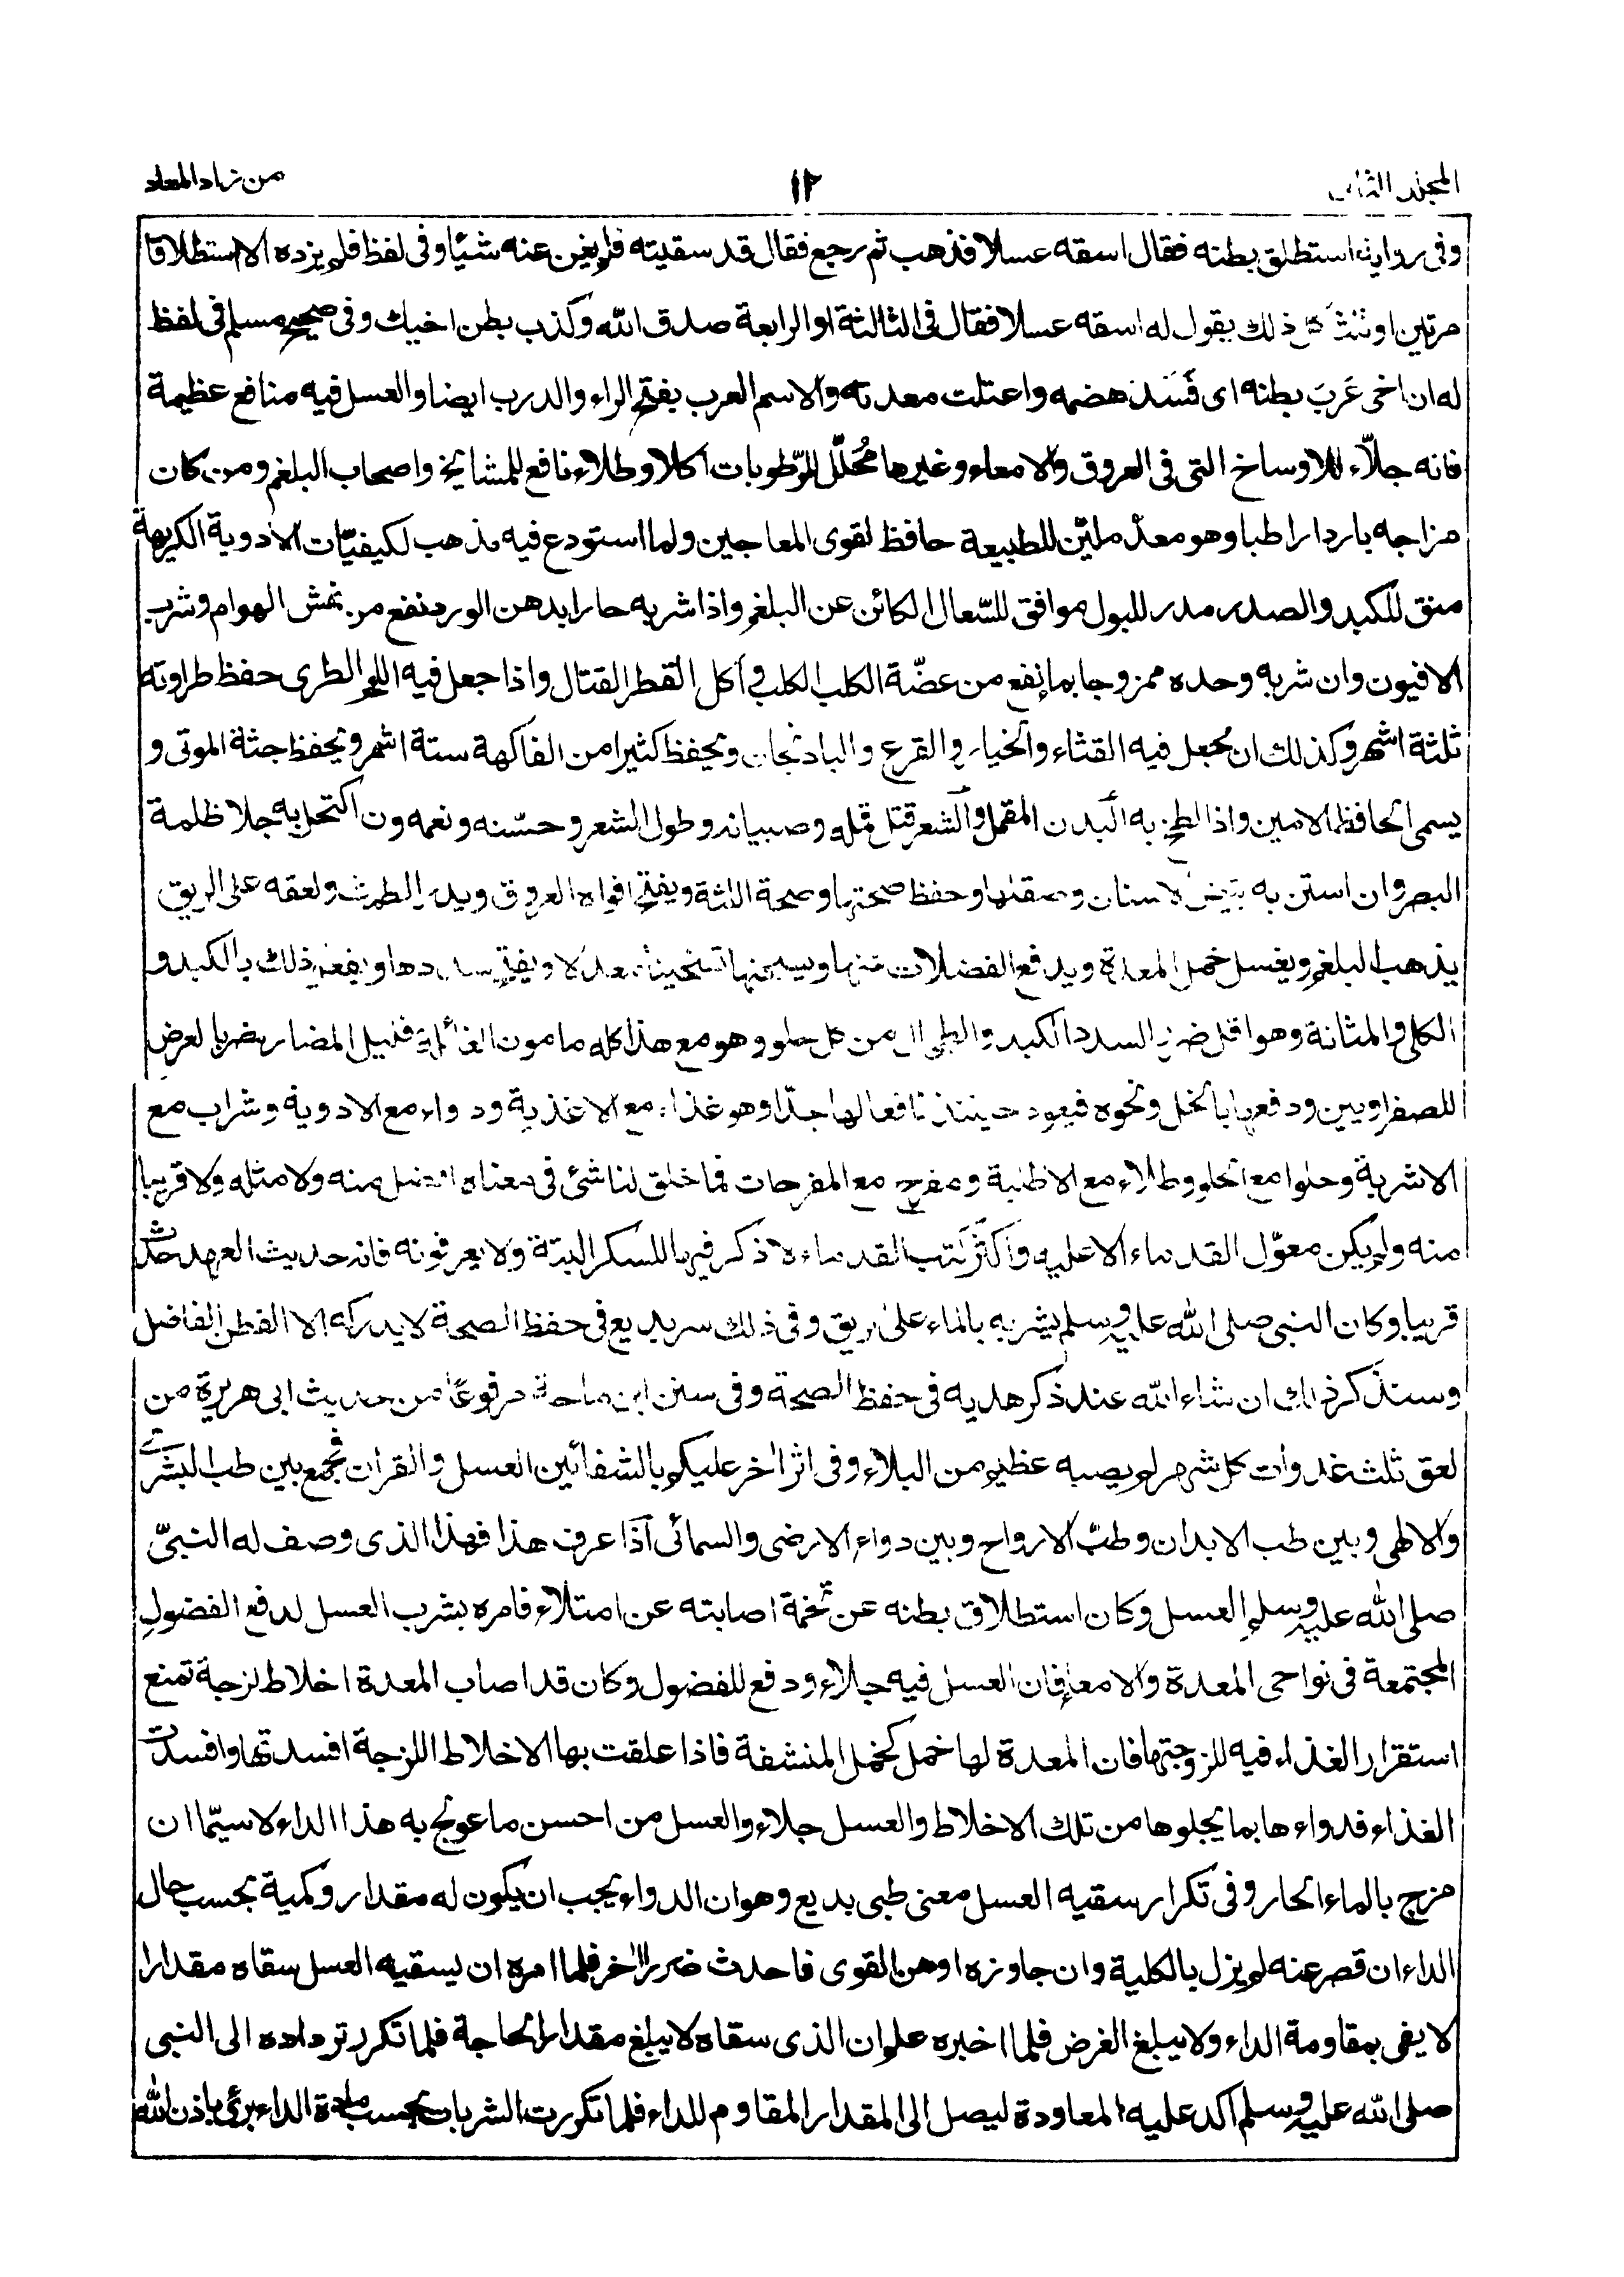 المجلد الثانى
١٢
من زاد المعاد
وفى رواية استطلق بطنه فقال اسقه عسلا فذهب ثم رجع فقال قد سقيته فلم يغن عنه شيئا وفى لفظ فلم يزده الا استطلاقا
مرتين او ثلثا كل ذلك يقول له اسقه عسلا فقال فى الثالثة او الرابعة صدق الله وكذب بطن اخيك وفى صحيح مسلم فى لفظ
له ان اخى عَرِبَ بطنه اى فَسَدَ هضمه واعتلت معدته والاسم العرب بفتح الراء والدرب ايضا والعسل فيه منافع عظيمة
فانه جلاّء للاوساخ التى فى العروق والامعاء وغيرها مُحلّل للرّطوبات اكلا وطلاء نافع للمشايخ واصحاب البلغم ومن كان
مزاجه باردا رطبا وهو مغذّ مليّن للطبيعة حافظ لقوى المعاجين ولما استودع فيه مذهب لكيفيّات الادوية الكريهة
منق للكبد والصدر مدر للبول موافق للسّعال الكائن عن البلغم واذا شربه حارا بدهن الورد نفع من نهش الهوام وشرب
الافيون وان شربه وحده ممزوجا بماء نفع من عضّة الكلب الكلب واكل القطر القتال واذا جعل فيه اللحم الطرى حفظ طراوته
ثلثة اشهر وكذلك ان جعل فيه القثاء والخيار والقرع والباذنجان ويحفظ كثيرا من الفاكهة ستة اشهر ويحفظ جثة الموتى و
يسمى الحافظ الامين واذا لطخ به البدن المقمل والشعر قتل قمله وصيبانه وطول الشعر وحسّنه ونعمه وان اكتحل به جلا ظلمة
البصر وان استن به بيّض الاسنان وصقلها وحفظ صحتها وصحة اللثة ويفتح افواه العروق ويدر الطمث ولعقه على الريق
يذهب البلغم ويغسل خمل المعدة ويدفع الفضلات عنها ويسخنها تسخينا معتدلا ويفتح سددها ويفعل ذلك بالكبد و
الكلى والمثانة وهو اقل ضررا لسدد الكبد والطحال من كل حلو وهو مع هذا كله مامون الغائلة قليل المضار مضر بالعرض
للصفراويين ودفعها بالخل ونحوه فيعود حينئذ نافعا لها جدّا وهو غذاء مع الاغذية ودواء مع الادوية وشراب مع
الاشربة وحلوا مع الحلو وطلاء مع الاطلية ومفرح مع المفرحات فما خلق لنا شئ فى معناه افضل منه ولا مثله ولا قريبا
منه ولم يكن معوّل القدماء الا عليه واكثر كتب القدماء لا ذكر فيها للسكر البتة ولا يعرفونه فانه حديث العهد حدث
قريبا وكان النبى صلى الله عليه وسلم يشربه بالماء على الريق وفى ذلك سر بديع فى حفظ الصحة لا يدركه الا الفطن الفاضل
وسنذكر ذلك ان شاء الله عند ذكر هديه فى حفظ الصحة وفى سنن ابن ماجة مرفوعًا من حديث ابى هريرة من
لعق ثلث غدوات كل شهر لم يصبه عظيم من البلاء وفى اثر اخر عليكم بالشفائين العسل والقران فجمع بين طب البشرى
والالهى وبين طب الابدان وطبّ الارواح وبين دواء الارضى والسمائى اذا عرف هذا فهذا الذى وصف له النبىّ
صلى الله عليه وسلم العسل وكان استطلاق بطنه عن تخمة اصابته عن امتلاء فامره بشرب العسل لدفع الفضول
المجتمعة فى نواحى المعدة والامعاء فان العسل فيه جلاء ودفع للفضول وكان قد اصاب المعدة اخلاط لزجة تمنع
استقرار الغذاء فيه للزوجتها فان المعدة لها خمل كخمل المنشفة فاذا علقت بها الاخلاط اللزجة افسدتها وافسدت
الغذاء فدواءها بما يجلوها من تلك الاخلاط والعسل جلاء والعسل من احسن ما عولج به هذا الداء لا سيّما ان
مزج بالماء الحار وفى تكرار سقيه العسل معنى طبى بديع وهو ان الدواء يجب ان يكون له مقدار وكمية بحسب حال
الداء ان قصر عنه لم يزل بالكلية وان جاوزه اوهن القوى فاحدث ضررا اخر فلما امره ان يسقيه العسل سقاه مقدارا
لا يفى بمقاومة الداء ولا يبلغ الغرض فلما اخبره علم ان الذى سقاه لا يبلغ مقدار الحاجة فلما تكرر ترداده الى النبى
صلى الله عليه وسلم اكد عليه المعاودة ليصل الى المقدار المقاوم للداء فلما تكررت الشربات بحسب مادة الداء برئ باذن الله